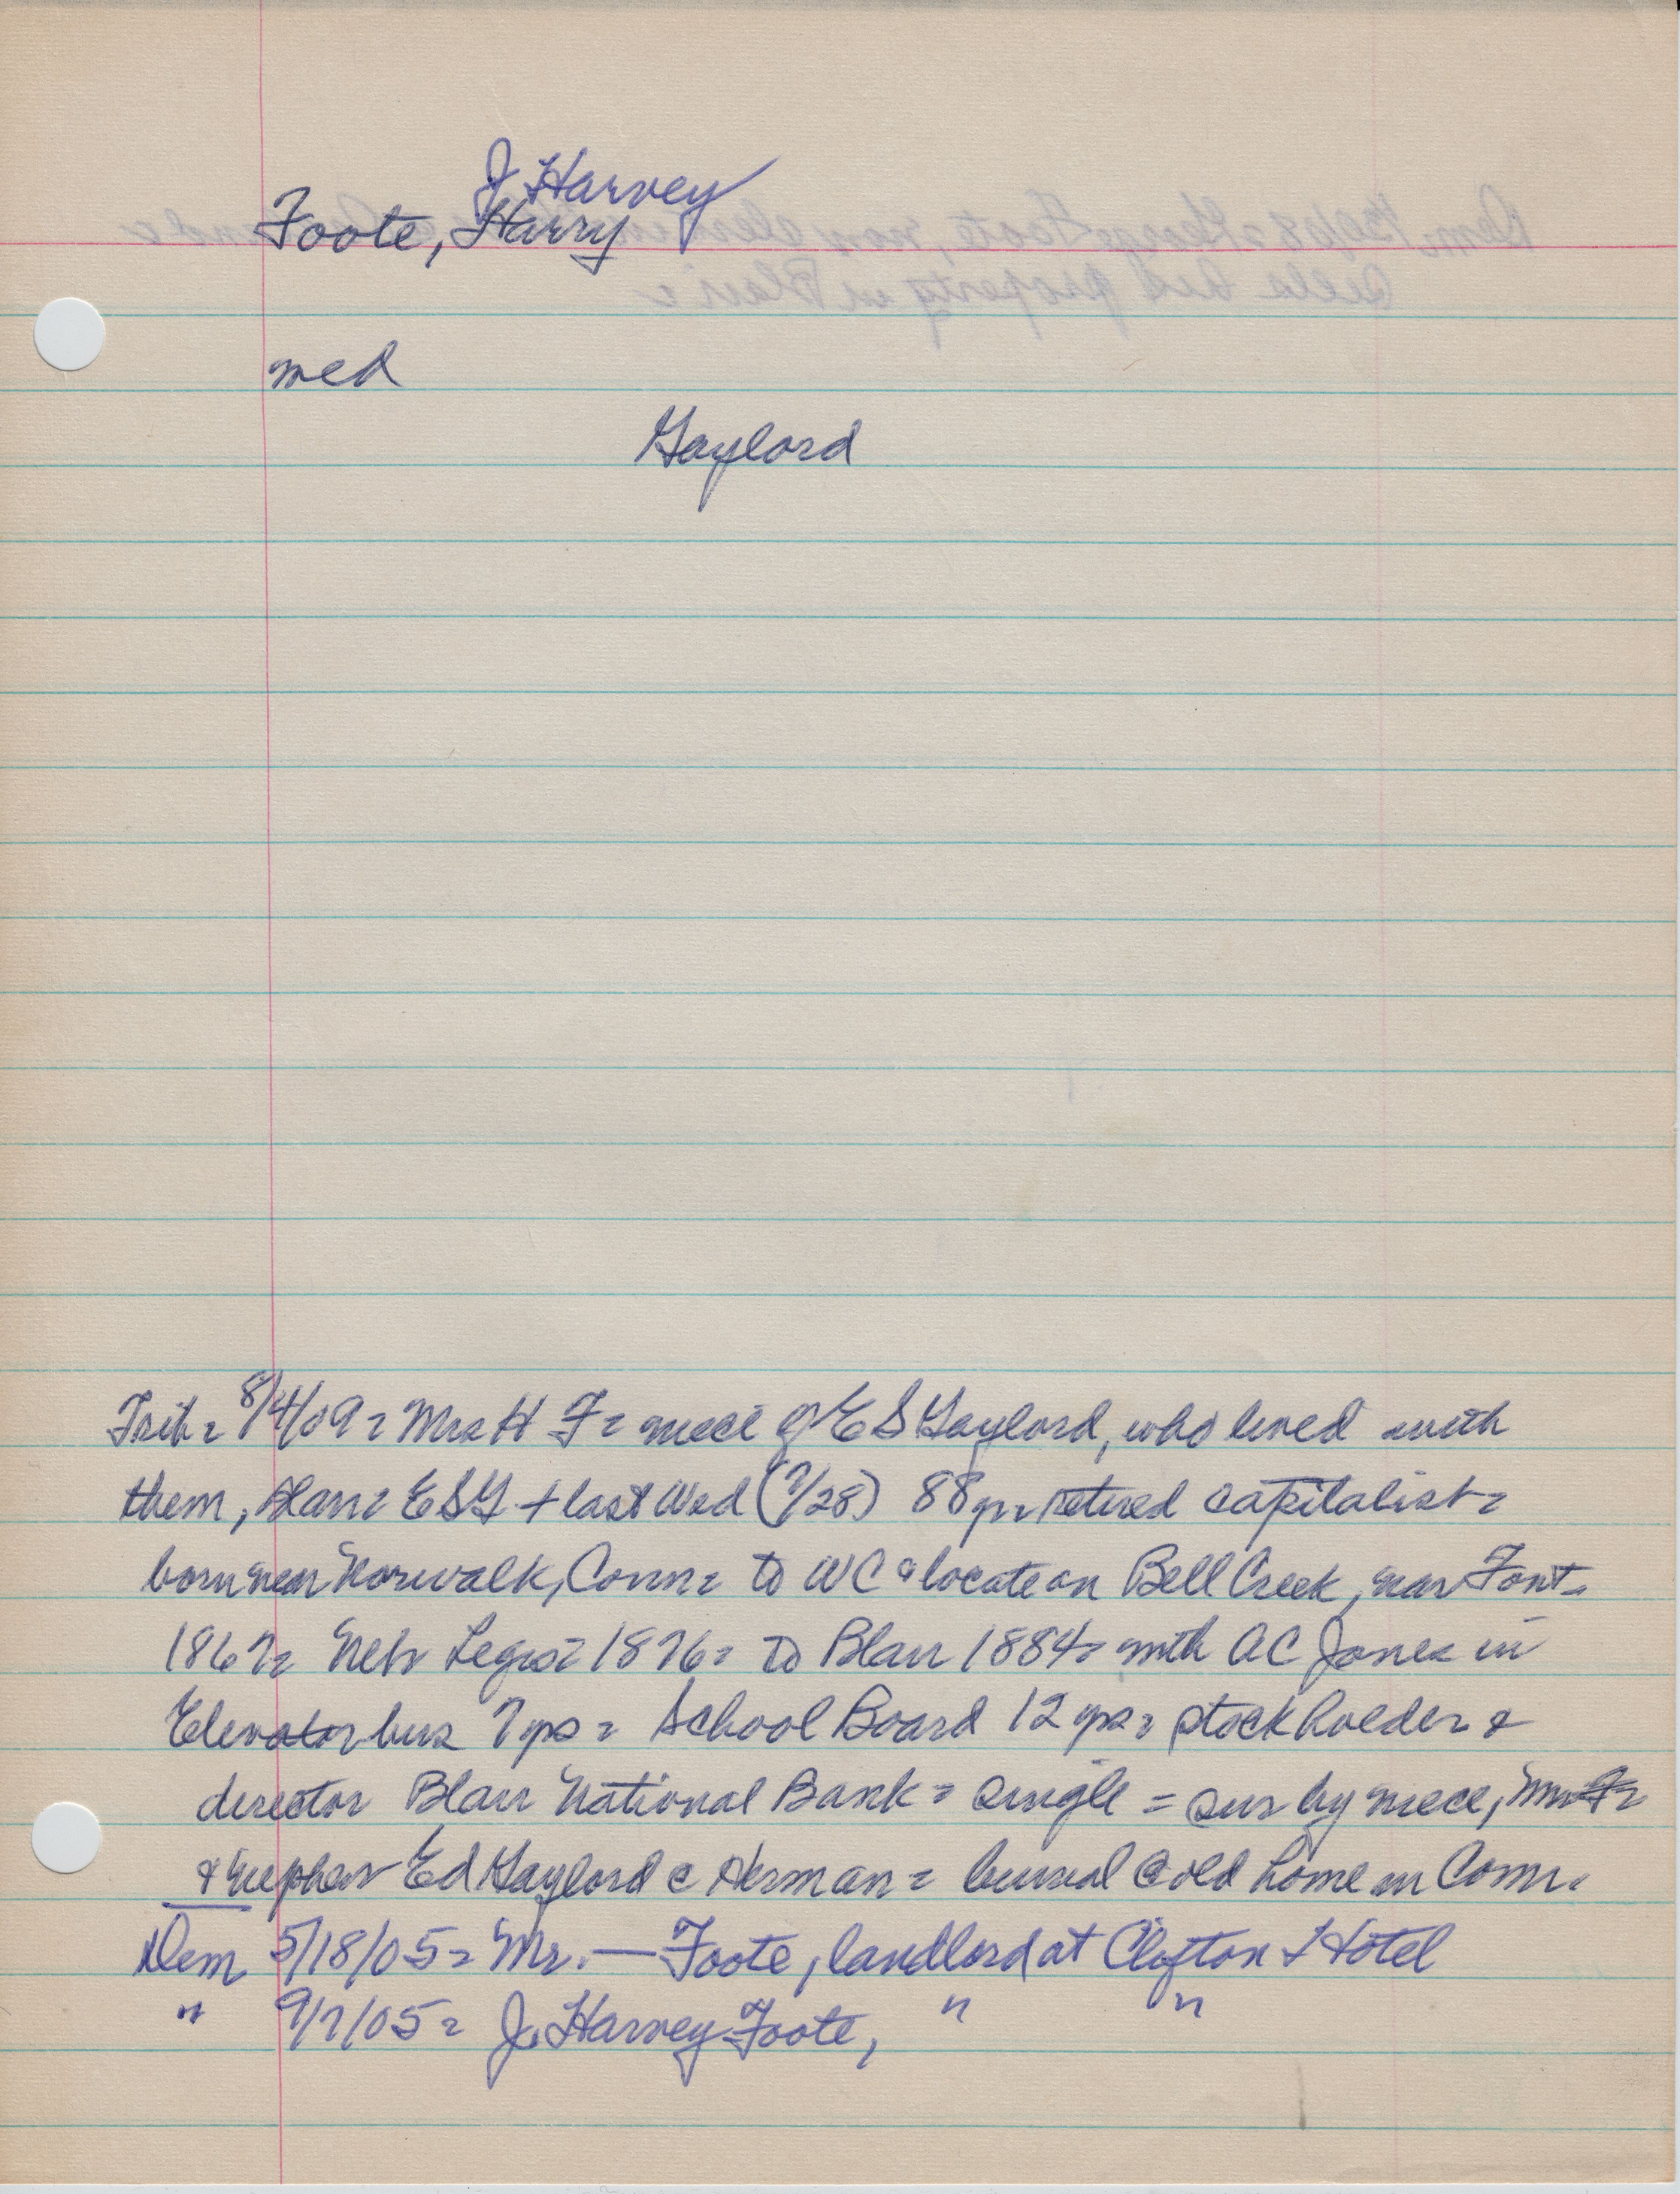 J Harvey
Foote, Harry
med
Gaylord
Trib = 8/4/09 = Mrs H F = niece of E S Gaylord, who lived with
them, Blair = E S G + last Wed (7/28) 88 yr = retired capitalist =
born near Norwalk, Conn = to WC & locate on Bell Creek, near Font =
1867 = Neb Legis = 1876 = to Blair 1884 = with AC Jones in
Elevator bus 7 yrs = School Board 12 yrs = stockholder &
director Blair National Bank = single = sur by niece, Mrs F =
& nephew Ed Gaylord @ Herman = burial @ old home in Conn.
Dem 5/18/05 = Mr. — Foote, landlord at Clifton Hotel
" 9/7/05 = J. Harvey Foote, " "